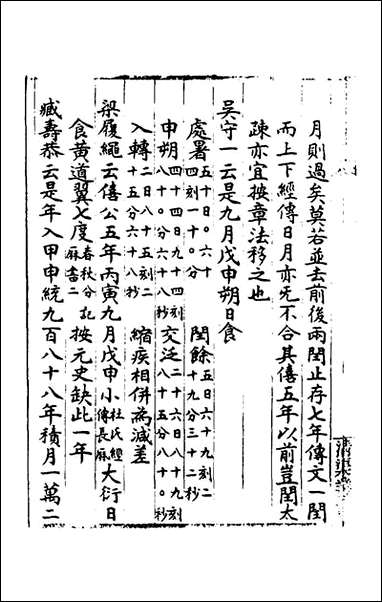 月則過矣莫若並去前後兩閏止存七年傳文一閏
而上下經傳日月亦旡不合其僖五年以前豈閏太
疎亦宜按章法移之也
吳守一云是九月戊申朔日食
處暑五十日。六十四刻一十。分 閏餘五日六十九刻二十九分三十二秒
申朔四十四日九十四刻八十。分六十八秒 交泛二十六日八十九刻八十五分八十。秒
入轉二日八十五刻二十五分六十八秒 縮疾相併為減差
梁履繩云僖公五年丙寅九月戊申小杜氏經傳長厤大衍日
食黃道翼七度春秋分記厤書二按元史缺此一年
臧壽恭云是年入甲申統九百八十八年積月一萬二